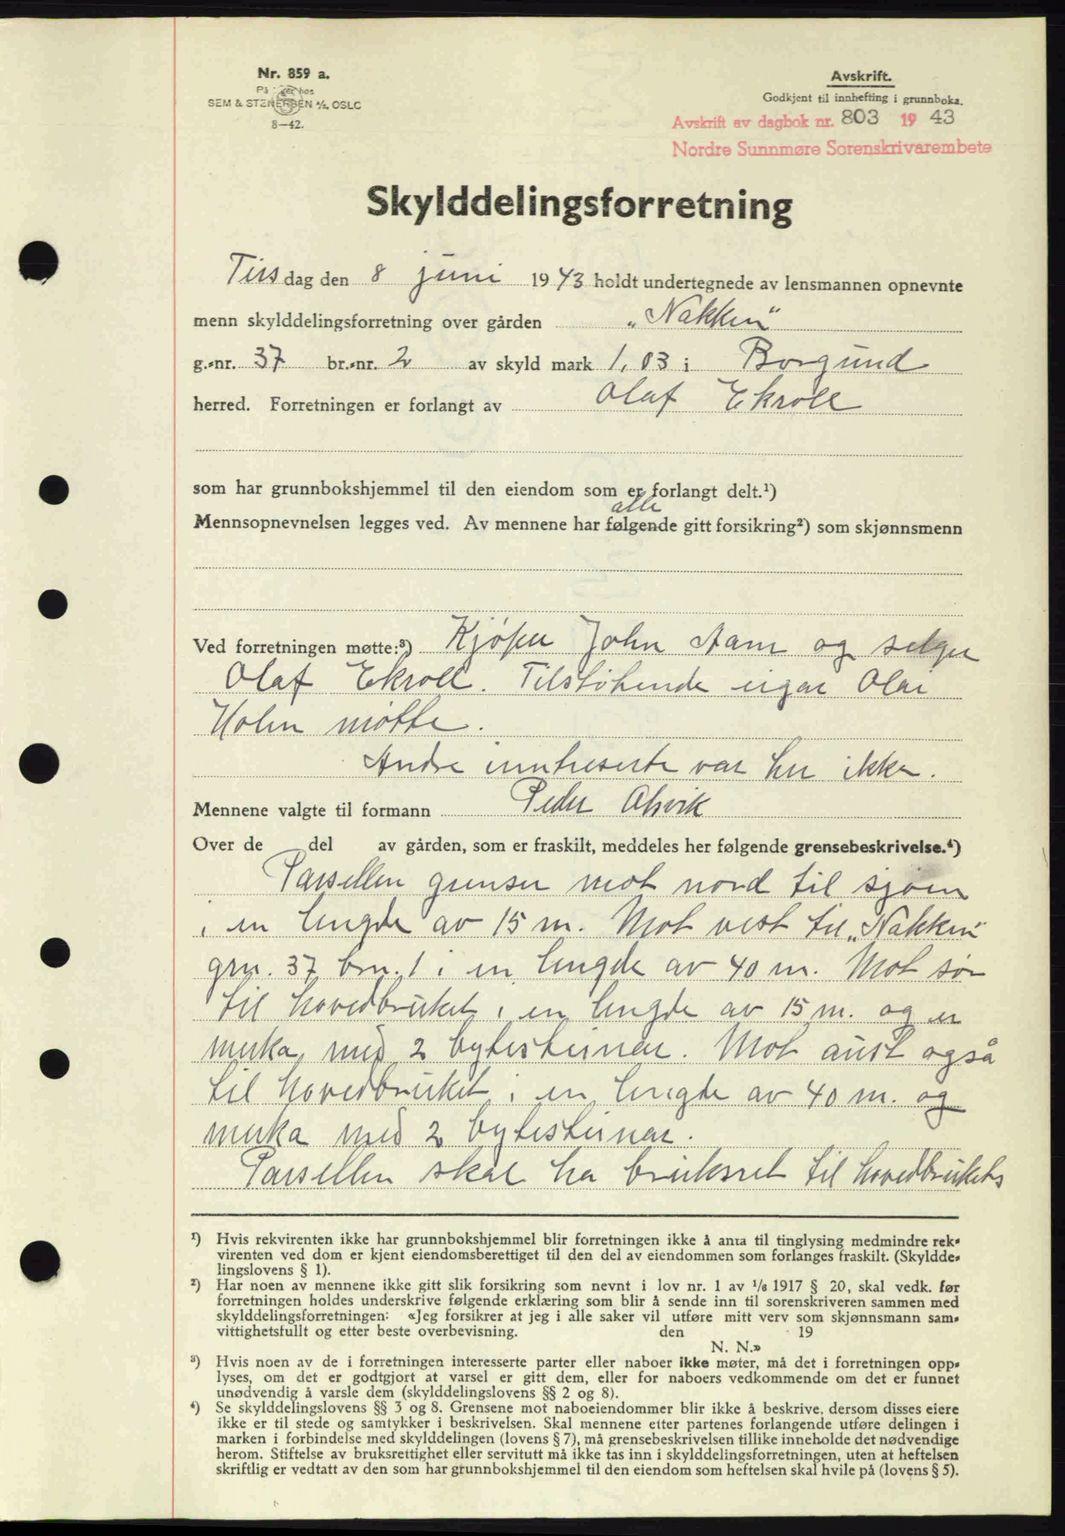 Nr. 859 a.
På lager hos
SEM & STENERSEN A/S, OSLO
8—42.
Avskrift.
Godkjent til innhefting i grunnboka.
Avskrift av dagbok nr. 803 1943
Nordre Sunnmøre Sorenskrivarembete
Skylddelingsforretning
Tirsdag den 8 juni 1943 holdt undertegnede av lensmannen opnevnte
menn skylddelingsforretning over gården „Nakken"
g.-nr. 37 br.-nr. 2 av skyld mark 1,03 i Borgund
herred. Forretningen er forlangt av Olaf Ekroll
som har grunnbokshjemmel til den eiendom som er forlangt delt.¹)
alle
Mennsopnevnelsen legges ved. Av mennene har følgende gitt forsikring²) som skjønnsmenn
Ved forretningen møtte:³) Kjøper John Aam og selger
Olaf Ekroll. Tilstøtende eigar Olai
Holen møtte.
Andre inntreserte var her ikke.
Mennene valgte til formann Peder Alsvik
Over de del av gården, som er fraskilt, meddeles her følgende grensebeskrivelse.⁴)
Parsellen grenser mot nord til sjøen
i en lengde av 15 m. Mot vest til „Nakken"
grn. 37 brn. 1 i en lengde av 40 m. Mot sør
til hovedbruket i en lengde av 15 m. og er
merka med 2 bytesteinar. Mot aust også
til hovedbruket i en lengde av 40 m. og
merka med 2 bytesteinar.
Parsellen skal ha bruksret til hovedbrukets
¹) Hvis rekvirenten ikke har grunnbokshjemmel blir forretningen ikke å anta til tinglysing medmindre rek-
virenten ved dom er kjent eiendomsberettiget til den del av eiendommen som forlanges fraskilt. (Skyldde-
lingslovens § 1).
²) Har noen av mennene ikke gitt slik forsikring som nevnt i lov nr. 1 av ¹/₈ 1917 § 20, skal vedk. før
forretningen holdes underskrive følgende erklæring som blir å sende inn til sorenskriveren sammen med
skylddelingsforretningen: «Jeg forsikrer at jeg i alle saker vil utføre mitt verv som skjønnsmann sam-
vittighetsfullt og etter beste overbevisning. den 19
N. N.»
³) Hvis noen av de i forretningen interesserte parter eller naboer ikke møter, må det i forretningen opp-
lyses, om det er godtgjort at varsel er gitt dem, eller for naboers vedkommende om det er funnet
unødvendig å varsle dem (skylddelingslovens §§ 2 og 8).
⁴) Se skylddelingslovens §§ 3 og 8. Grensene mot naboeiendommer blir ikke å beskrive, dersom disses eiere
ikke er til stede og samtykker i beskrivelsen. Skal mennene etter partenes forlangende utføre delingen i
marken i forbindelse med skylddelingen (lovens § 7), må grensebeskrivelsen tillike inneholde det nødvendige
herom. Stiftelse av bruksrettighet eller servitutt må ikke tas inn i skylddelingsforretningen, uten at heftelsen
skriftlig er vedtatt av den som har grunnbokshjemmel til den eiendom som heftelsen skal hvile på (lovens § 5).